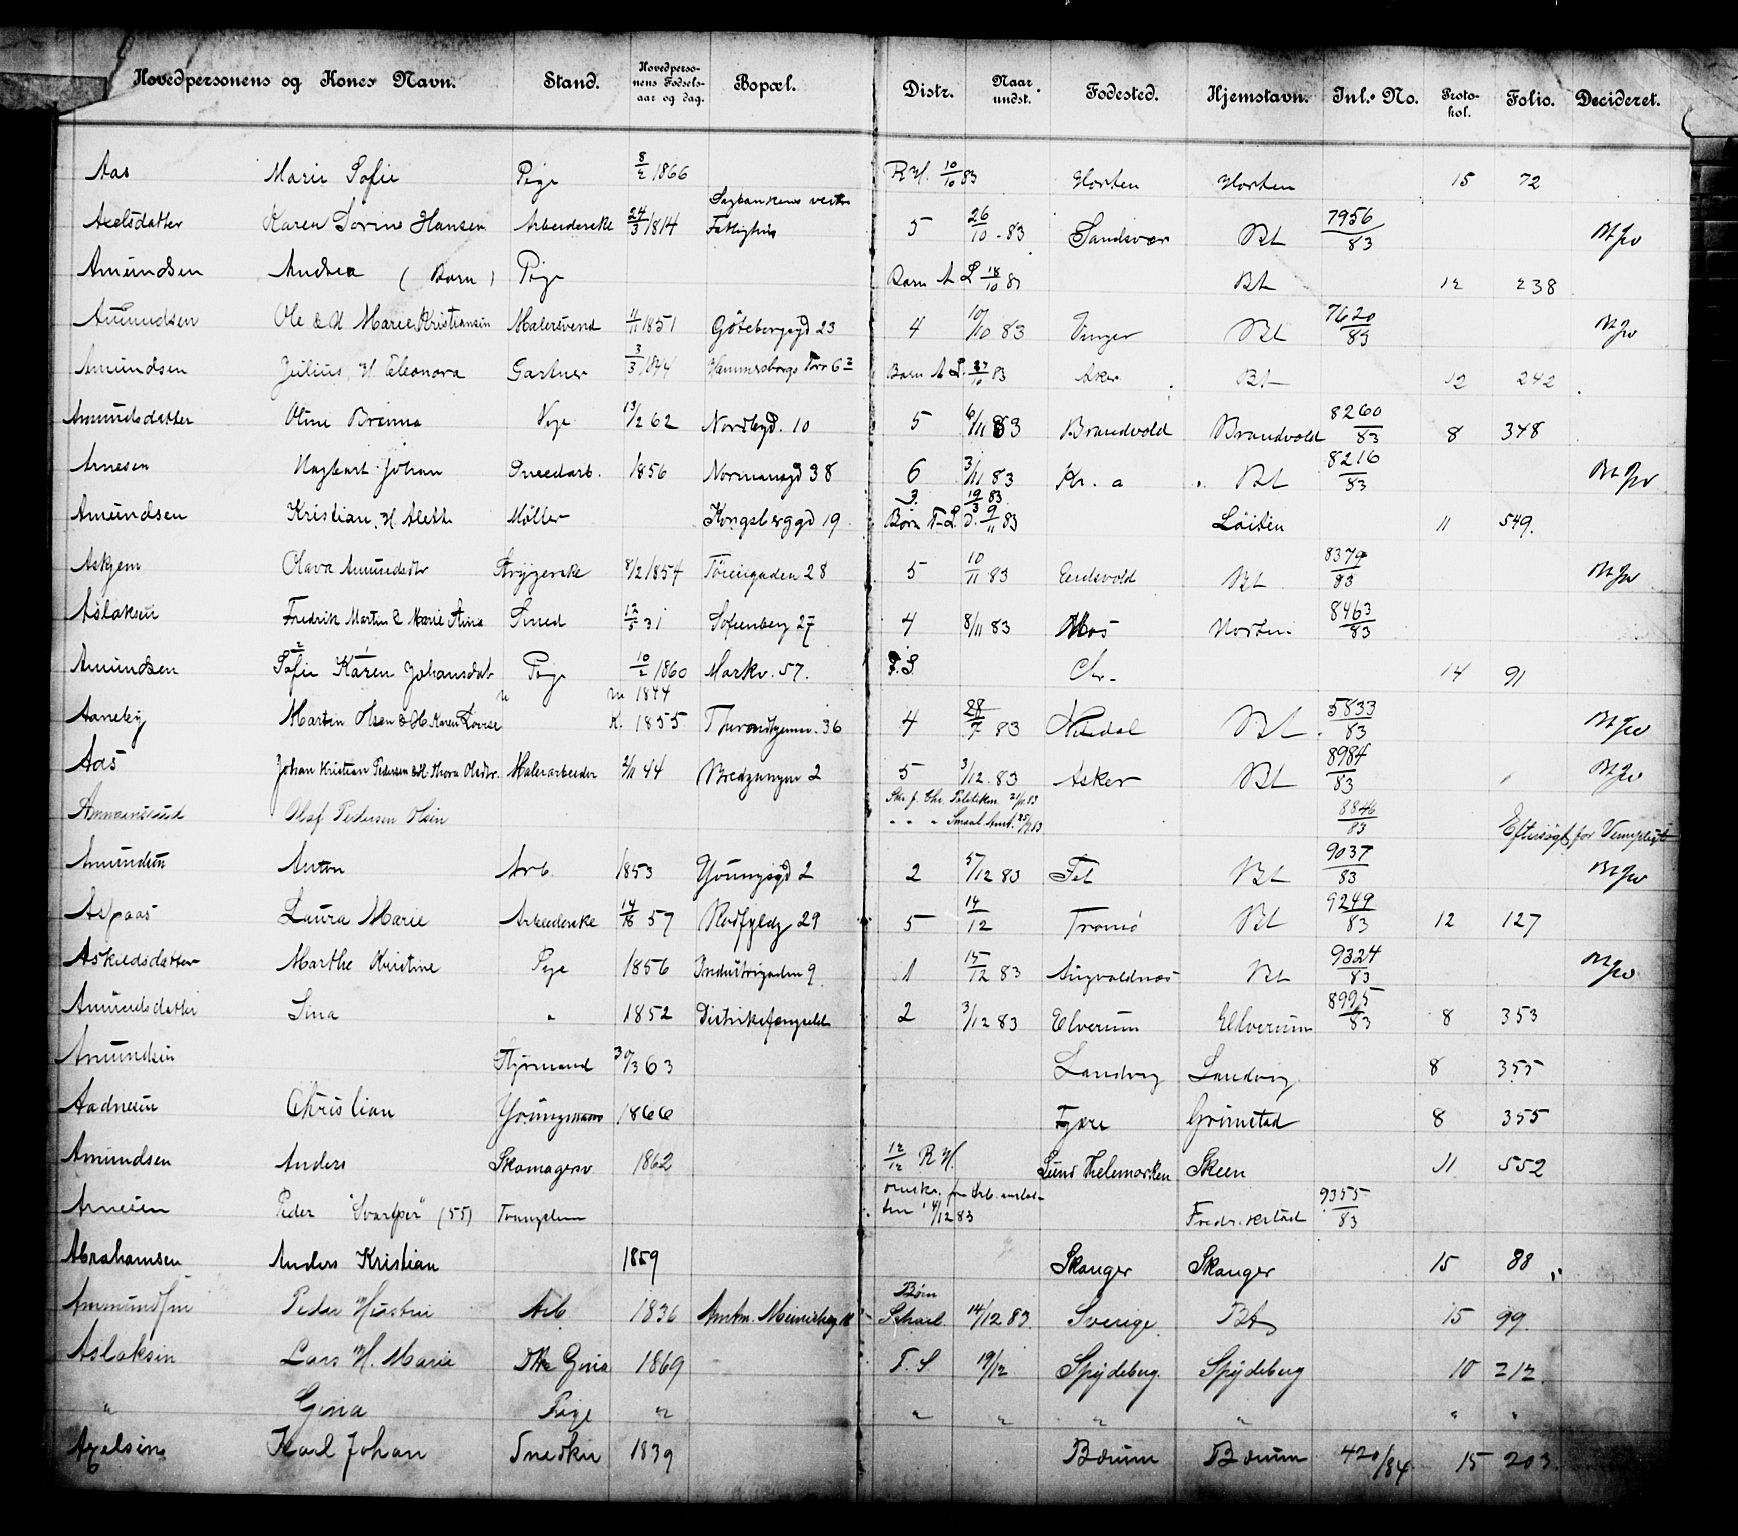 Hovedpersonens og Kones Navn. Stand. Hovedpersonens Fødselsaar og dag. Bopæl. Distr. Naar undst. Fødested. Hjemstavn. Inl. No. Protokol. Folio. Decideret.
Aas Marie Sofie Pige 8/2 1866 R H. 10/10 83 Horten Horten 15 72
Axelsdatter Karen Sorine Hansen Arbeiderske 24/3 1814 Fattighus 5 26/10 - 83 Sandsvær Bt 7956/83
Amundsen Andrea ( Barn ) Pige Barn A L 18/10 83 Bt 12 238
Amundsen Ole & H Marie Kristiansen Malersvend 11/11 1851 Götebergsgd 23 4 10/10 83 Vinger Bt 7620/83
Amundsen Julius, H. Eleonora Gartner 3/3 1844 Hammersborgs Torv 6 Barn A L. 27/10 83 Asker Bt 12 242
Amundsdatter Oline Pige 13/2 62 Nordbygd. 10 5 6/11 83 Brandvold Brandvold 8260/83 8 348
Arnesen Hagbart Johan Smedarb. 1856 Normansgd 38 6 3/11 83 Kr. a Bt 8216/83
3 19/3 83
Amundsen Kristian, H. Alette Møller Kongsberggd 19 Børn T-L 9/11 83 Løiten 11 549.
Askjem Olava Amundsdtr Strygerske 8/2 1854 Töiengaden 28 5 10/11 83 Eidsvold Bt 8379/83
Aslaksen Fredrik Martin & Marie Stina Smed 12/5 31 Sofienberg 27 4 8/11 83 Mos Horten 8463/83
Amundsen Sofie Karen Johansdat Pige 10/2 1860 Markv. 57. F.S Chr. 14 91
m 1844
Aaneby Martin Olsen & H. Karen Lovise K. 1855 36 4 28/7 83 Bt 5833/83
Aas Johan Kristian Pedersen & H. Thora Olsdtr. Malerarbeider 2/11 44 Bredgangen 2 5 3/12 83 Asker Bt 8984/83
Olaf Pedersen Olsen Skr. f. Chr. Politikm. 21/11 83 8846/83
Eftersøgt for
Amundsen Anton Arb. 1853 Youngsgd 2 2 5/12 83 Fet Bt 9037/83
Aspaas Laura Marie Arbeiderske 57 Rodfyldg 29 5 14/12 Tromsø Bt 9249/83 12 127
Askildsdatter Marthe Kristine Pige 1856 Industrigaden 9 1 15/12 83 Bt 9324/83
Amundsdatter Lina " 1852 Distriktsfængselet 2 3/12 83 Elverum Elverum 8995/83 8 353
Amundsen Styrmand 30/3 63 Landvig Landvig 8 355
Aadnesen Christian Youngmand 1866 Fjære Grimstad 8 355
Amundsen Anders Skomagersv 1862 12/12 R H. Lund Thelemarken Skeen 11 552
Arnesen Peder "Svartper" (55) 14/12 83 Fredr.kstad 9355/83
Abrahamsen Anders Kristian 1859 Skauger Skauger 15 88
Børn
Peder Arb 1836 Amtm. Meinichsg Schael. 14/12 83 Sverige Bt 15 99.
Aslaksen Lars H. Marie Dtr Gina 1869 F. S 19/12 Spydeberg. Spydeberg 10 212.
" Gina Pige " " " " " " "
Axelsen Karl Johan Snedker 1839 Bærum Bærum 420/84 15 203.